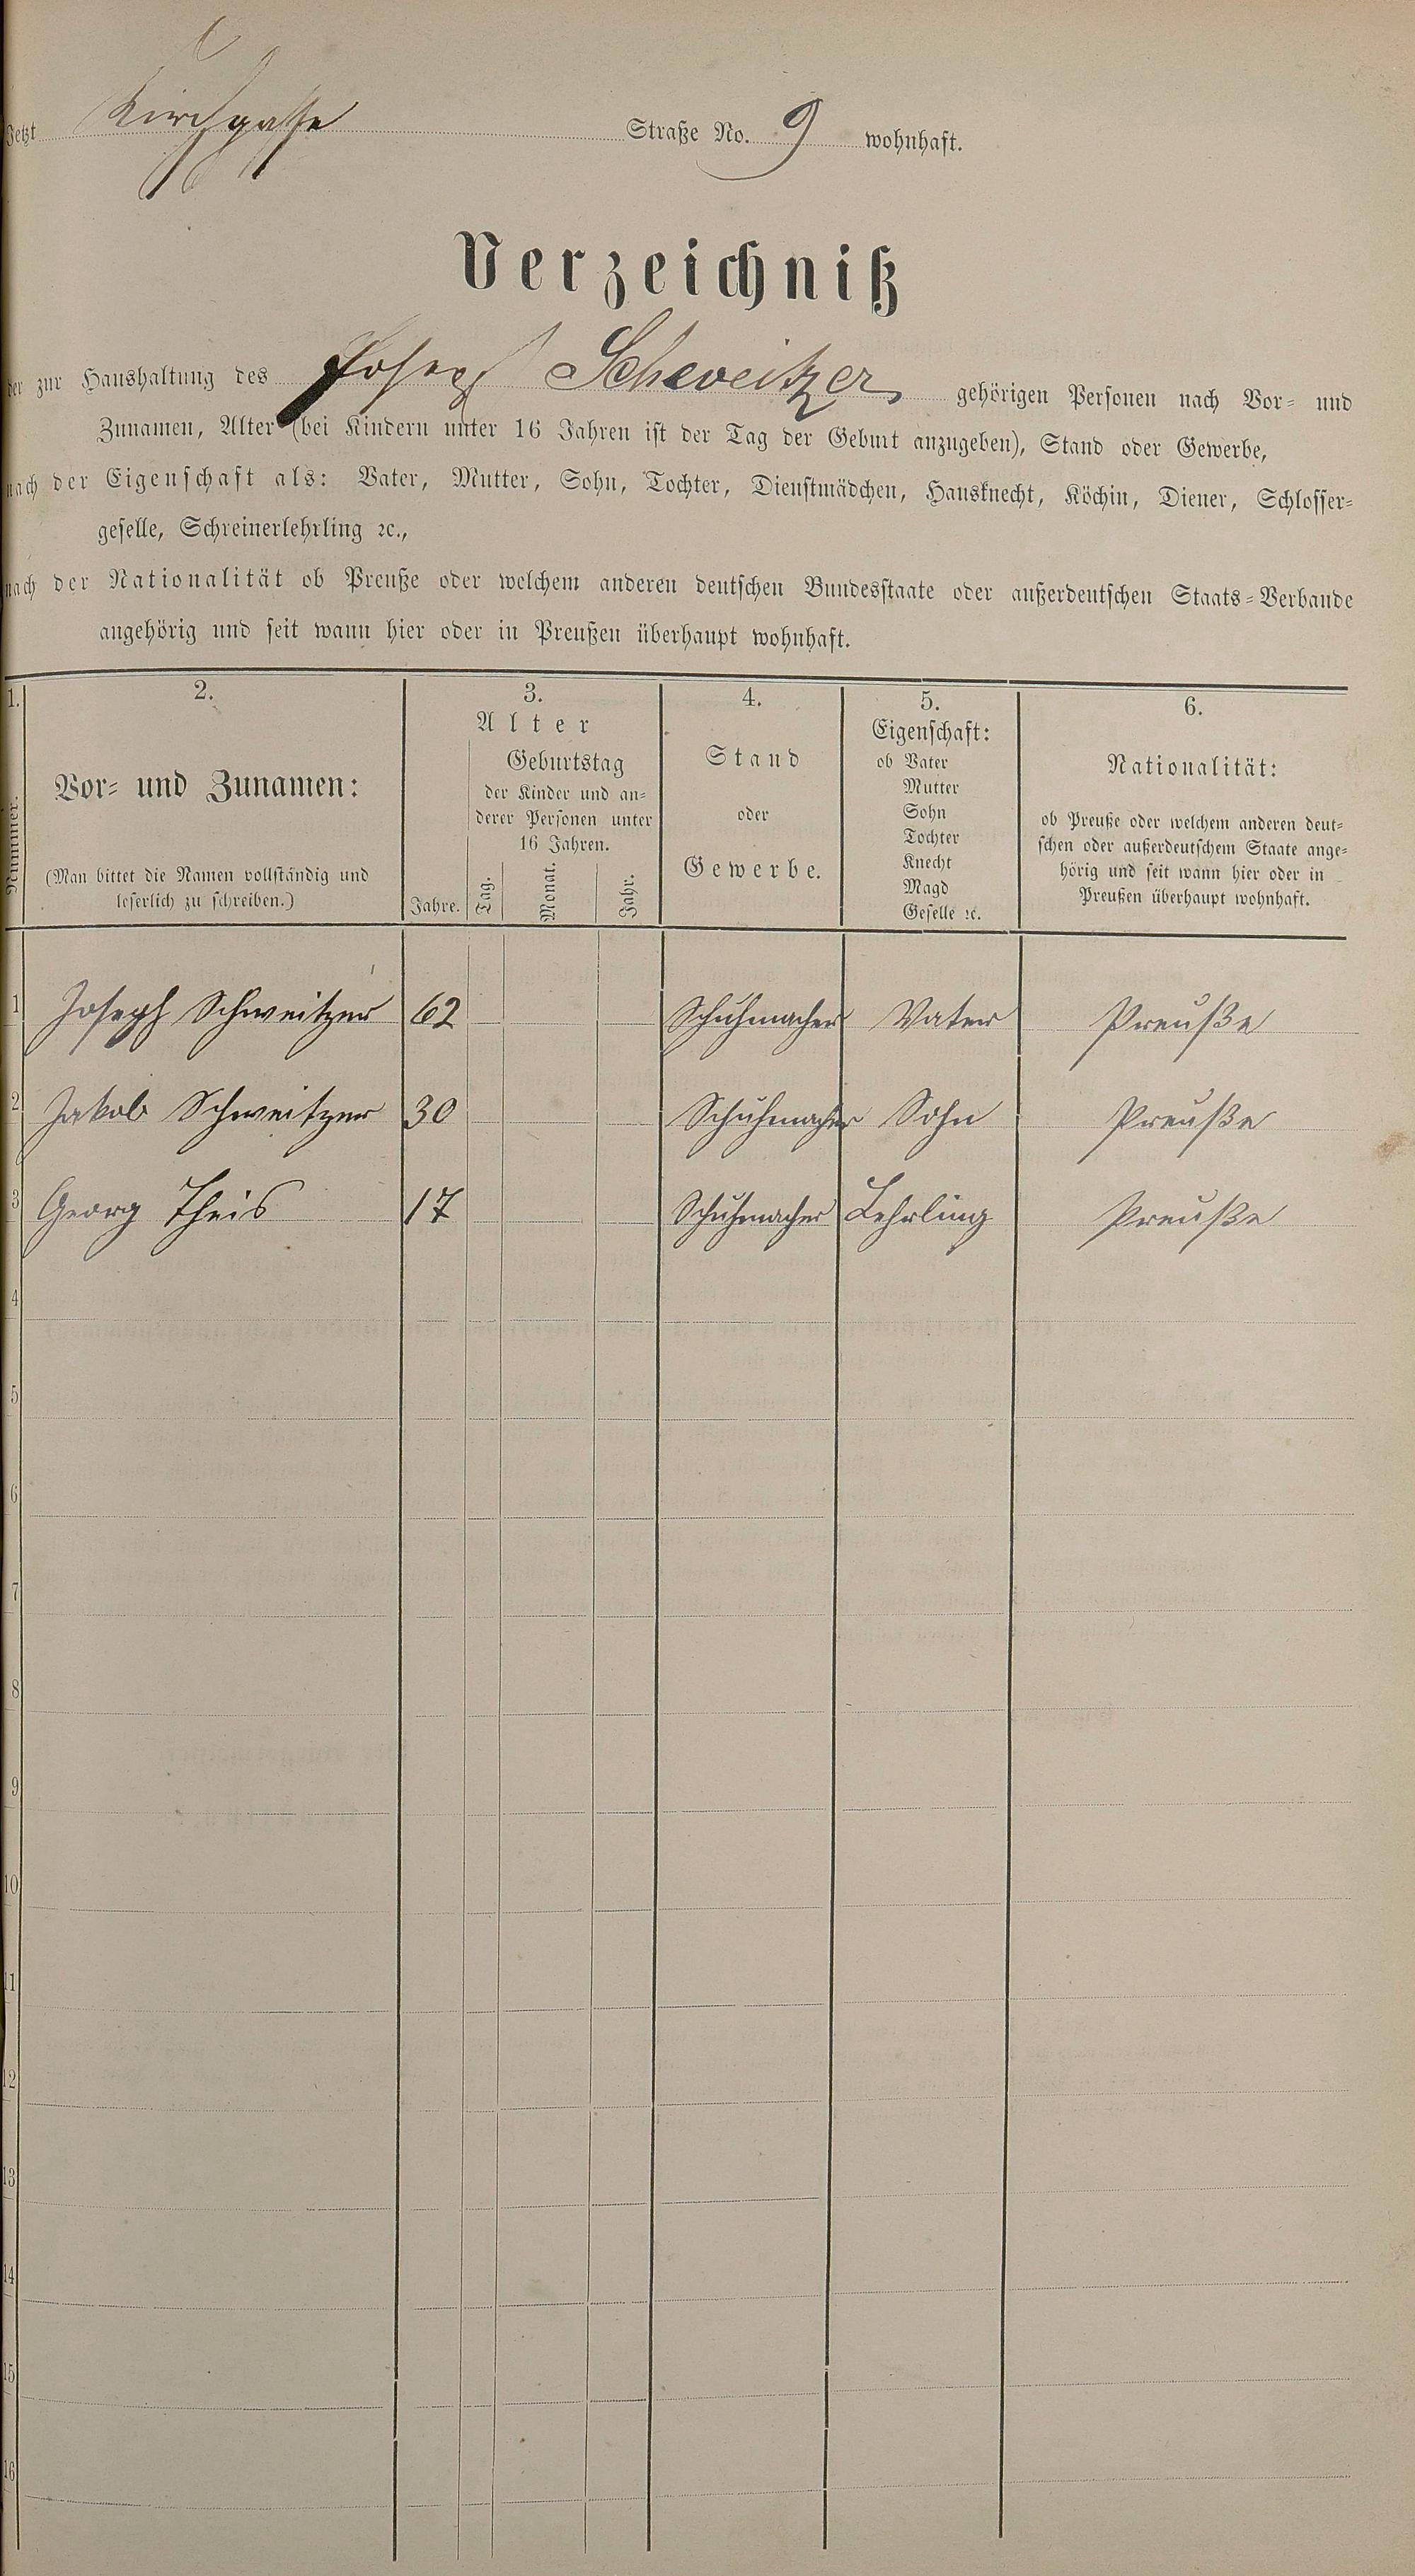 Jetzt Kirchgasse Straße No. 9 wohnhaft.
Verzeichniß
der zur Haushaltung des Joseph Schweitzer gehörigen Personen nach Vor- und
Zunamen, Alter (bei Kindern unter 16 Jahren ist der Tag der Geburt anzugeben), Stand oder Gewerbe,
nach der Eigenschaft als: Vater, Mutter, Sohn, Tochter, Dienstmädchen, Hausknecht, Köchin, Diener, Schlosser-
geselle, Schreinerlehrling ꝛc.,
nach der Nationalität ob Preuße oder welchem anderen deutschen Bundesstaate oder außerdeutschen Staats-Verbande
angehörig und seit wann hier oder in Preußen überhaupt wohnhaft.
1.
Nummer.
2.
Vor- und Zunamen:
(Man bittet die Namen vollständig und
leserlich zu schreiben.)
3.
Alter
Jahre.
Geburtstag
der Kinder und an-
derer Personen unter
16 Jahren.
Tag. Monat. Jahr.
4.
Stand
oder
Gewerbe.
5.
Eigenschaft:
ob Vater
Mutter
Sohn
Tochter
Knecht
Magd
Geselle ꝛc.
6.
Nationalität:
ob Preuße oder welchem anderen deut-
schen oder außerdeutschem Staate ange-
hörig und seit wann hier oder in
Preußen überhaupt wohnhaft.
1 Joseph Schweitzer 62 Schuhmacher Vater Preuße
2 Jakob Schweitzer 30 Schuhmacher Sohn Preuße
3 Georg Theis 17 Schuhmacher Lehrling Preuße
4
5
6
7
8
9
10
11
12
13
14
15
16